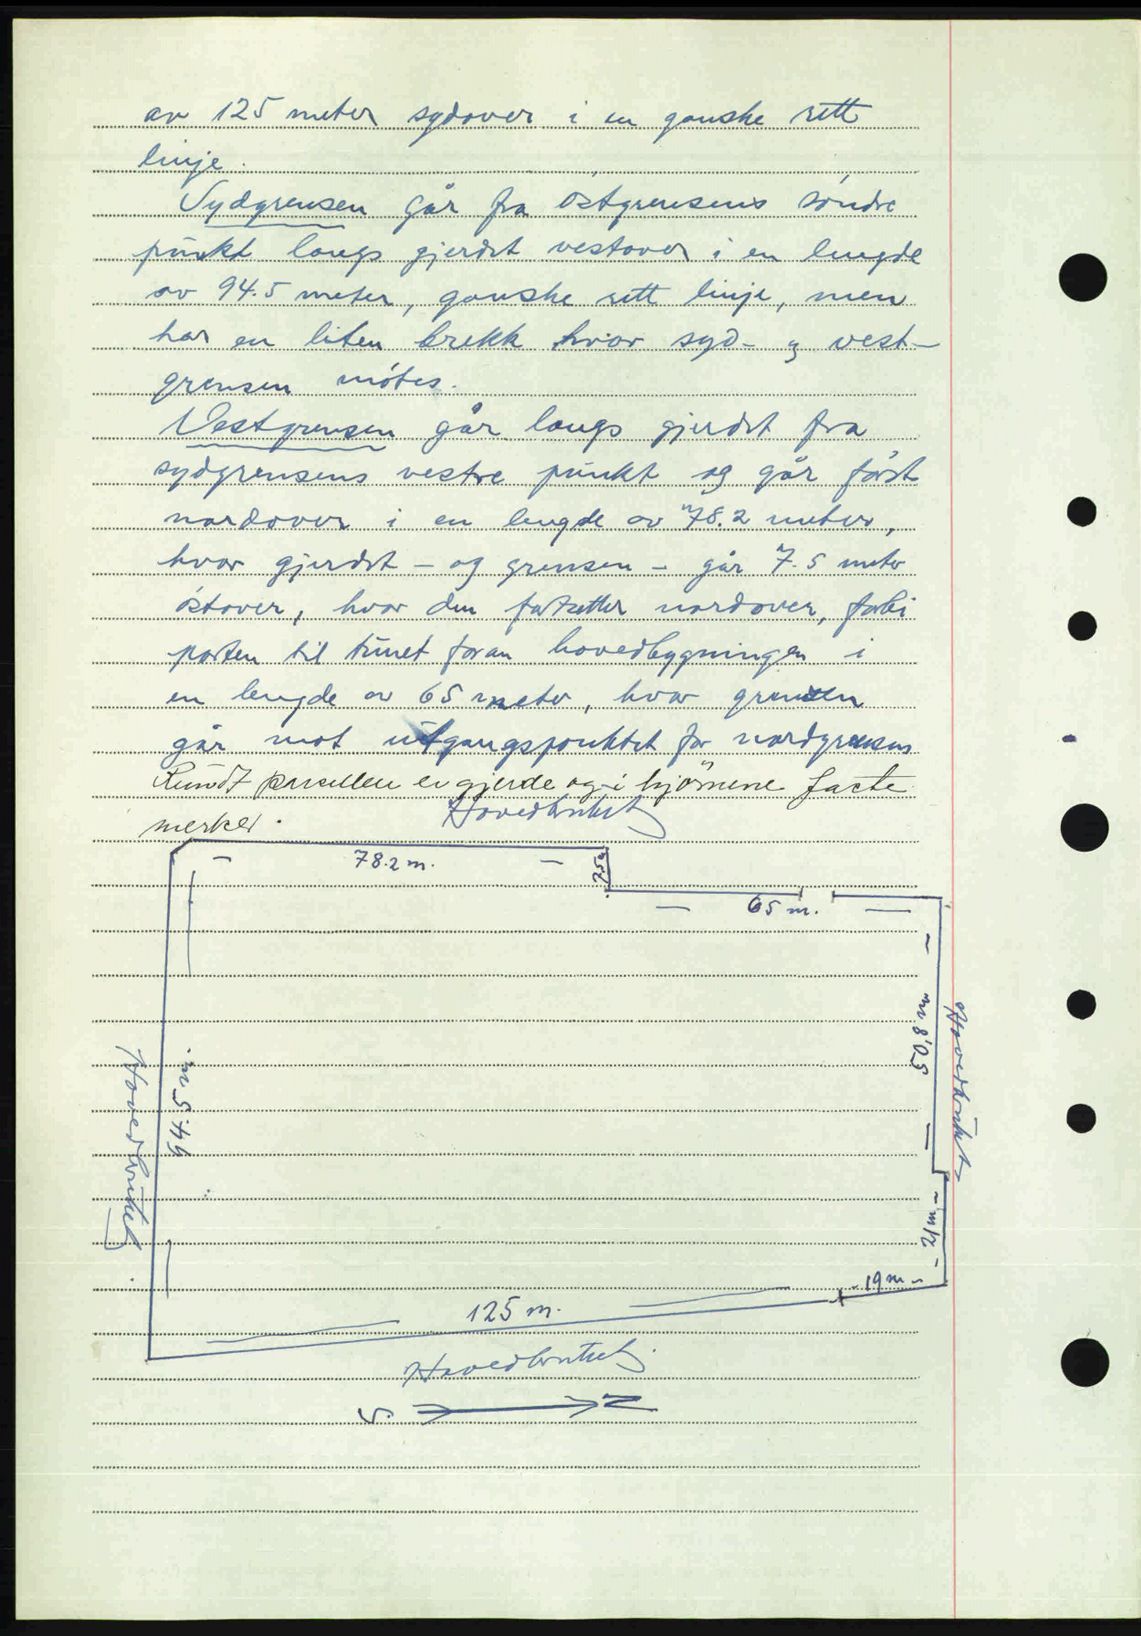 av 125 meter sydover i en ganske rett
linje.
Sydgrensen går fra östgrensens söndre
punkt langs gjerdet vestover i en lengde
av 94.5 meter, ganske rett linje, men
har en liten brekk hvor syd- og vest-
grensen mötes.
Vestgrensen går langs gjerdet fra
sydgrensens vestre punkt og går först
nordover i en lengde av 78.2 meter,
hvor gjerdet - og grensen - går 7.5 meter
östover, hvor den fortsetter nordover, forbi
porten til tunet foran hovedbygningen i
en lengde av 65 meter, hvor grensen
går mot utgangspunktet for nordgrensen
Rundt parsellen er gjerde og i hjörnene faste
merker.
Hovedbruket
78.2 m.
7.5 m
65 m.
50,8 m
Hovedbruket
94.5 m.
Hovedbruket
21 m
19 m
125 m.
Hovedbruket
S. N